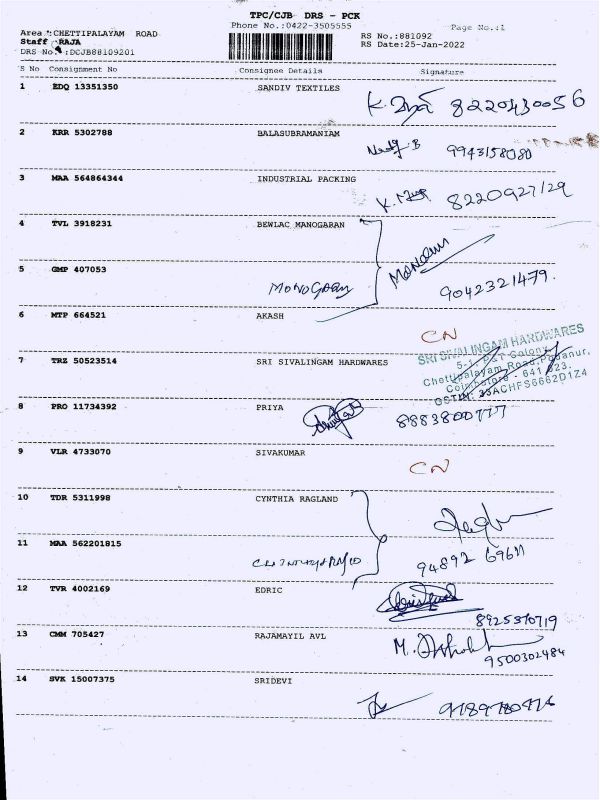 TPC/CJB DRS - PCK
Phone No.:0422-3505555
Page No.:1
Area :CHETTIPALAYAM ROAD
Staff :RAJA
DRS No. :DCJB88109201
RS No.:881092
RS Date:25-Jan-2022
S No Consignment No Consignee Details Signature
1 EDQ 13351350 SANDIV TEXTILES 8220430056
2 KRR 5302788 BALASUBRAMANIAM 9943158080
3 MAA 564864344 INDUSTRIAL PACKING 8220927129
4 TVL 3918231 BEWLAC MANOGARAN
5 GMP 407053 9042321479.
6 MTP 664521 AKASH CN
7 TRZ 50523514 SRI SIVALINGAM HARDWARES
SRI SIVALINGAM HARDWARES
5-1, P&T Colony,
Chettipalayam Road, Podanur,
Coimbatore - 641 023.
GSTIN: 33ACHFS6662D1Z4
8 PRO 11734392 PRIYA 8883800777
9 VLR 4733070 SIVAKUMAR CN
10 TDR 5311998 CYNTHIA RAGLAND
11 MAA 562201815 94892 69611
12 TVR 4002169 EDRIC 8925370719
13 CMM 705427 RAJAMAYIL AVL 9500302484
14 SVK 15007375 SRIDEVI